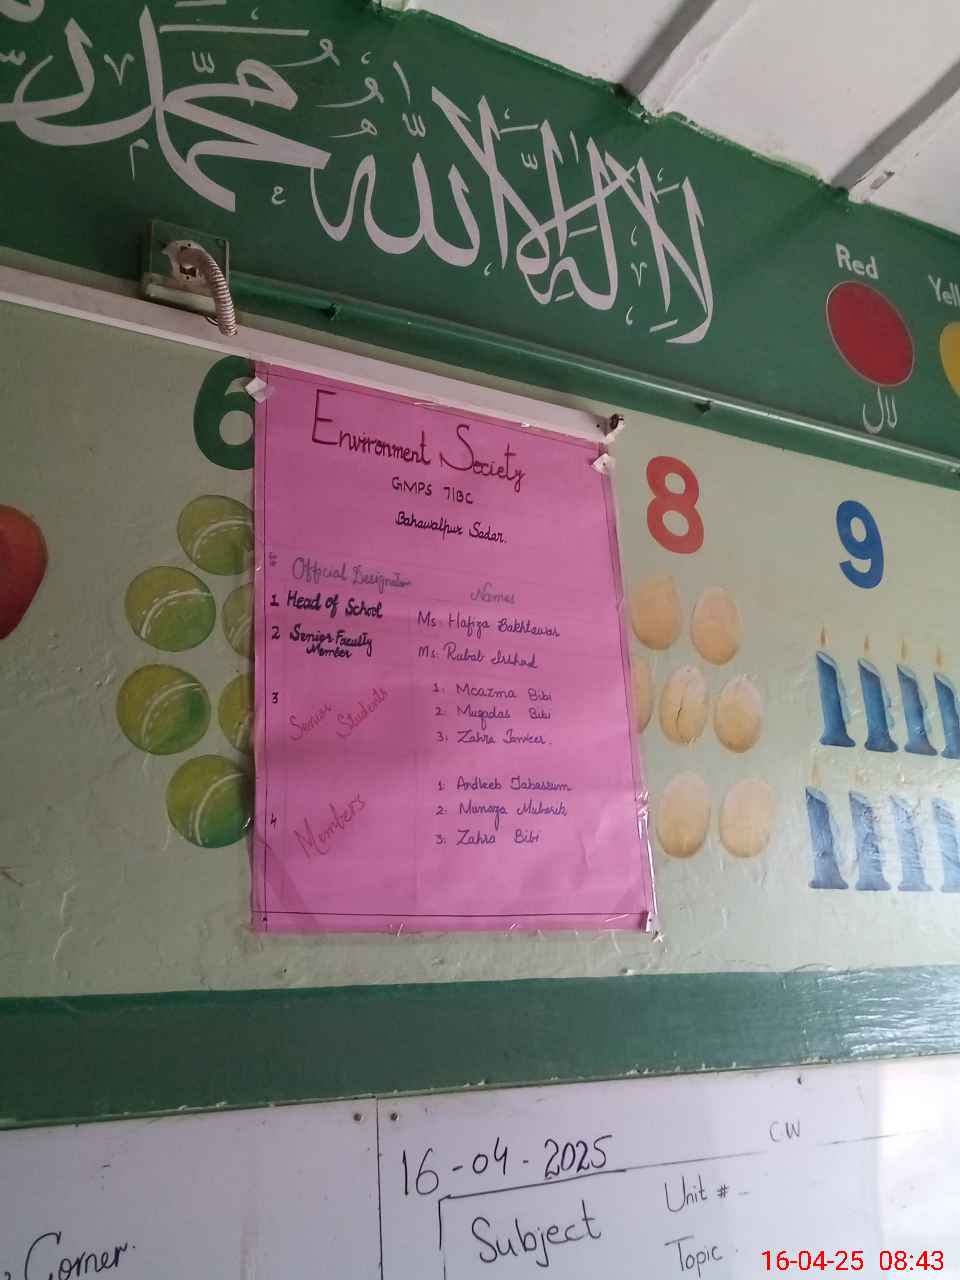 لا إله إلا الله محمد
Red
لال
6
8
9
Environment Society
GMPS 71BC
Bahawalpur Sadar.
Sr #
Official Designation
Names
1 Head of School
Ms. Hafiza Bakhtawar
2 Senior Faculty
Member
Ms. Rubab Irshad
3
Senior Students
1. Moazma Bibi
2. Muqadas Bibi
3. Zahra Tanveer.
4
Members
1. Andleeb Tabassum
2. Munaza Mubarik
3. Zahra Bibi
16-04-2025
CW
Subject
Unit # -
Topic
Corner.
16-04-25 08:43